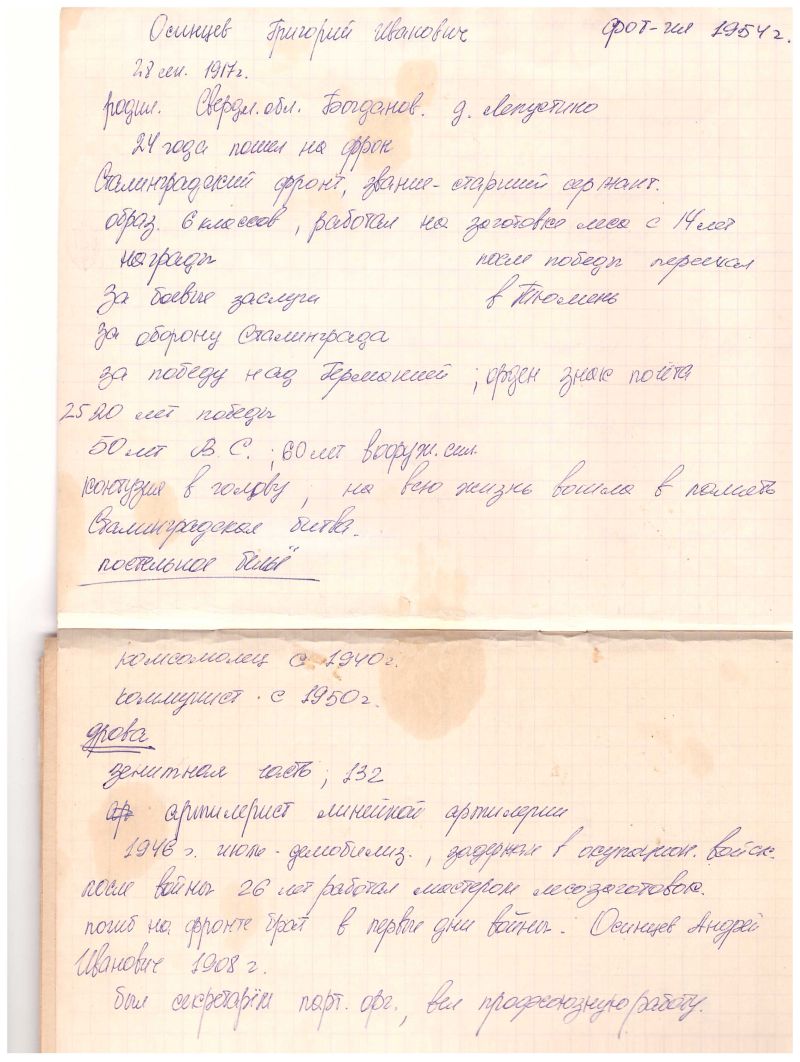 Осинцев Григорий Иванович фот-ия 1954г.
28 ян. 1917г.
родил. Свердл. обл. Богданов. д. Лепустино
24 года пошел на фрон
Сталинградский фронт, звание - старший сержант.
образ. 6 классов, работал на заготовке леса с 14 лет
награды после победы переехал
За боевые заслуги в Тюмень
за оборону Сталинграда
за победу над Германией ; орден знак почёта
25 20 лет победы
50 лет В. С. ; 60 лет вооруж. сил.
контузия в голову, на всю жизнь вошла в память
Сталинградская битва.
постельное бельё
комсомолец с 1940г.
коммунист - с 1950г.
дрова
зенитная часть ; 132
ар артилерист линейной артилерии
1946 г. июле - демобилиз., задержал в окупацион. войск.
после войны 26 лет работал мастером лесозаготовок.
погиб на фронте брат в первые дни войны. Осинцев Андрей
Иванович 1908 г.
был секретарём парт. орг., вел профсоюзную работу.